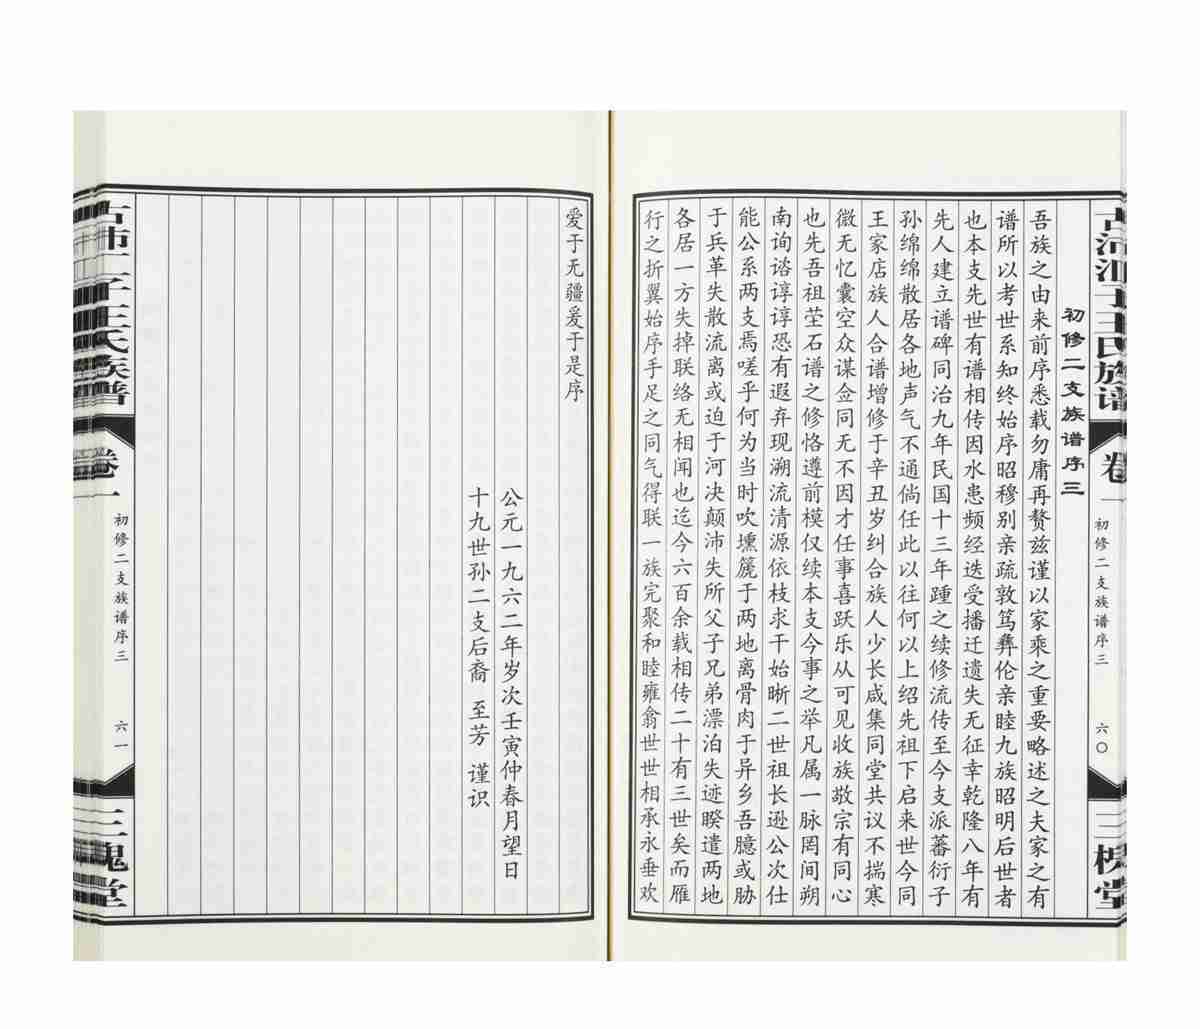 初修二支族谱序三
吾族之由来前序悉载勿庸再赘兹谨以家乘之重要略述之夫家之有
谱所以考世系知终始序昭穆别亲疏敦笃彝伦亲睦九族昭明后世者
也本支先世有谱相传因水患频经迭受播迁遗失无征幸乾隆八年有
先人建立谱碑同治九年民国十三年踵之续修流传至今支派蕃衍子
孙绵绵散居各地声气不通倘任此以往何以上绍先祖下启来世今同
王家店族人合谱增修于辛丑岁纠合族人少长咸集同堂共议不揣寒
微无忆囊空众谋佥同无不因才任事喜跃乐从可见收族敬宗有同心
也先吾祖茔石谱之修恪遵前模仅续本支今事之举凡属一脉罔间朔
南询谘谆谆恐有遐弃现溯流清源依枝求干始晰二世祖长逊公次仕
能公系两支焉嗟乎何为当时吹壎篪于两地离骨肉于异乡吾臆或胁
于兵革失散流离或迫于河决颠沛失所父子兄弟漂泊失迹睽遣两地
各居一方失掉联络无相闻也迄今六百余载相传二十有三世矣而雁
行之折翼始序手足之同气得联一族完聚和睦雍翕世世相承永垂欢
卷一
初修二支族谱序三
六〇
爱于无疆爰于是序
公元一九六二年岁次壬寅仲春月望日
十九世孙二支后裔 至芳 谨识
王氏族谱
卷一
初修二支族谱序三
六一
三槐堂